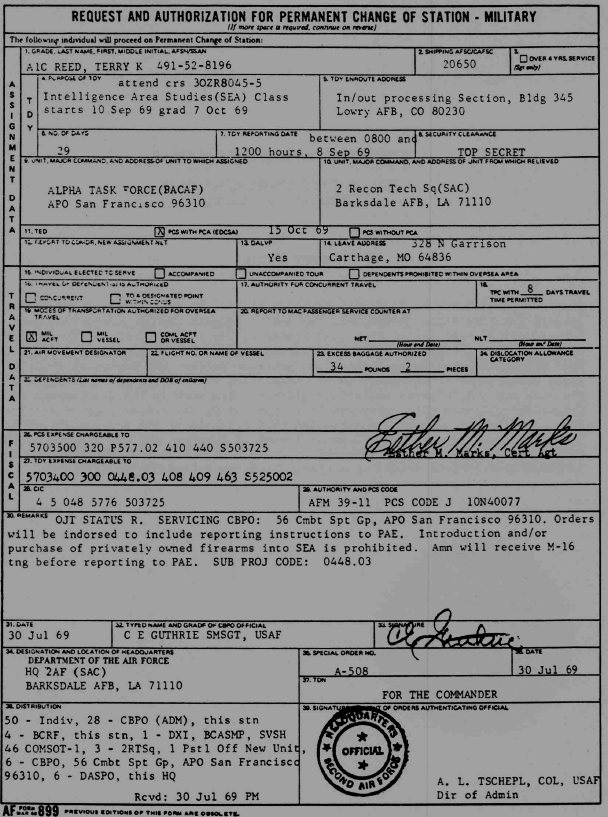 REQUEST AND AUTHORIZATION FOR PERMANENT CHANGE OF STATION - MILITARY
(If more space is required, continue on reverse)
The following individual will proceed on Permanent Change of Station:
1. GRADE, LAST NAME, FIRST, MIDDLE INITIAL, AFSN/SSAN
A1C REED, TERRY K 491-52-8196
2. SHIPPING AFSC/CAFSC
20650
3. OVER 4 YRS. SERVICE
(Sgt only)
ASSIGNMENT DATA
TDY
4. PURPOSE OF TDY
attend crs 3OZR8045-5
Intelligence Area Studies(SEA) Class
starts 10 Sep 69 grad 7 Oct 69
5. TDY ENROUTE ADDRESS
In/out processing Section, Bldg 345
Lowry AFB, CO 80230
6. NO. OF DAYS
29
7. TDY REPORTING DATE
between 0800 and
1200 hours, 8 Sep 69
8. SECURITY CLEARANCE
TOP SECRET
9. UNIT, MAJOR COMMAND, AND ADDRESS OF UNIT TO WHICH ASSIGNED
ALPHA TASK FORCE(BACAF)
APO San Francisco 96310
10. UNIT, MAJOR COMMAND, AND ADDRESS OF UNIT FROM WHICH RELIEVED
2 Recon Tech Sq(SAC)
Barksdale AFB, LA 71110
11. TED
X PCS WITH PCA (EDCSA) 15 Oct 69
PCS WITHOUT PCA
12. REPORT TO COMDR, NEW ASSIGNMENT NLT
13. DALVP
Yes
14. LEAVE ADDRESS
328 N Garrison
Carthage, MO 64836
15. INDIVIDUAL ELECTED TO SERVE
ACCOMPANIED
UNACCOMPANIED TOUR
DEPENDENTS PROHIBITED WITHIN OVERSEA AREA
TRAVEL DATA
16. TRAVEL OF DEPENDENT(S) IS AUTHORIZED
CONCURRENT
TO A DESIGNATED POINT WITHIN CONUS
17. AUTHORITY FOR CONCURRENT TRAVEL
18. TPC WITH 8 DAYS TRAVEL
TIME PERMITTED
19. MODES OF TRANSPORTATION AUTHORIZED FOR OVERSEA TRAVEL
X MIL ACFT
MIL VESSEL
COML ACFT OR VESSEL
20. REPORT TO MAC PASSENGER SERVICE COUNTER AT
NET (Hour and Date)
NLT (Hour and Date)
21. AIR MOVEMENT DESIGNATOR
22. FLIGHT NO. OR NAME OF VESSEL
23. EXCESS BAGGAGE AUTHORIZED
34 POUNDS 2 PIECES
24. DISLOCATION ALLOWANCE CATEGORY
25. DEPENDENTS (List names of dependents and DOB of children)
FISCAL
26. PCS EXPENSE CHARGEABLE TO
5703500 320 P577.02 410 440 S503725
Esther M. Marks
Esther M. Marks, Cert Agt
27. TDY EXPENSE CHARGEABLE TO
5703400 300 0448.03 408 409 463 S525002
28. CIC
4 5 048 5776 503725
29. AUTHORITY AND PCS CODE
AFM 39-11 PCS CODE J 10N40077
30. REMARKS OJT STATUS R. SERVICING CBPO: 56 Cmbt Spt Gp, APO San Francisco 96310. Orders
will be indorsed to include reporting instructions to PAE. Introduction and/or
purchase of privately owned firearms into SEA is prohibited. Amn will receive M-16
tng before reporting to PAE. SUB PROJ CODE: 0448.03
31. DATE
30 Jul 69
32. TYPED NAME AND GRADE OF CBPO OFFICIAL
C E GUTHRIE SMSGT, USAF
33. SIGNATURE
CE Guthrie
34. DESIGNATION AND LOCATION OF HEADQUARTERS
DEPARTMENT OF THE AIR FORCE
HQ 2AF (SAC)
BARKSDALE AFB, LA 71110
35. SPECIAL ORDER NO.
A-508
36. DATE
30 Jul 69
37. TDN
FOR THE COMMANDER
38. DISTRIBUTION
50 - Indiv, 28 - CBPO (ADM), this stn
4 - BCRF, this stn, 1 - DXI, BCASMP, SVSH
46 COMSOT-1, 3 - 2RTSq, 1 Pstl Off New Unit,
6 - CBPO, 56 Cmbt Spt Gp, APO San Francisco
96310, 6 - DASPO, this HQ
Rcvd: 30 Jul 69 PM
39. SIGNATURE OF ORDERS AUTHENTICATING OFFICIAL
HEADQUARTERS
OFFICIAL
SECOND AIR FORCE
A. L. TSCHEPL, COL, USAF
Dir of Admin
AF FORM 899 PREVIOUS EDITIONS OF THIS FORM ARE OBSOLETE.